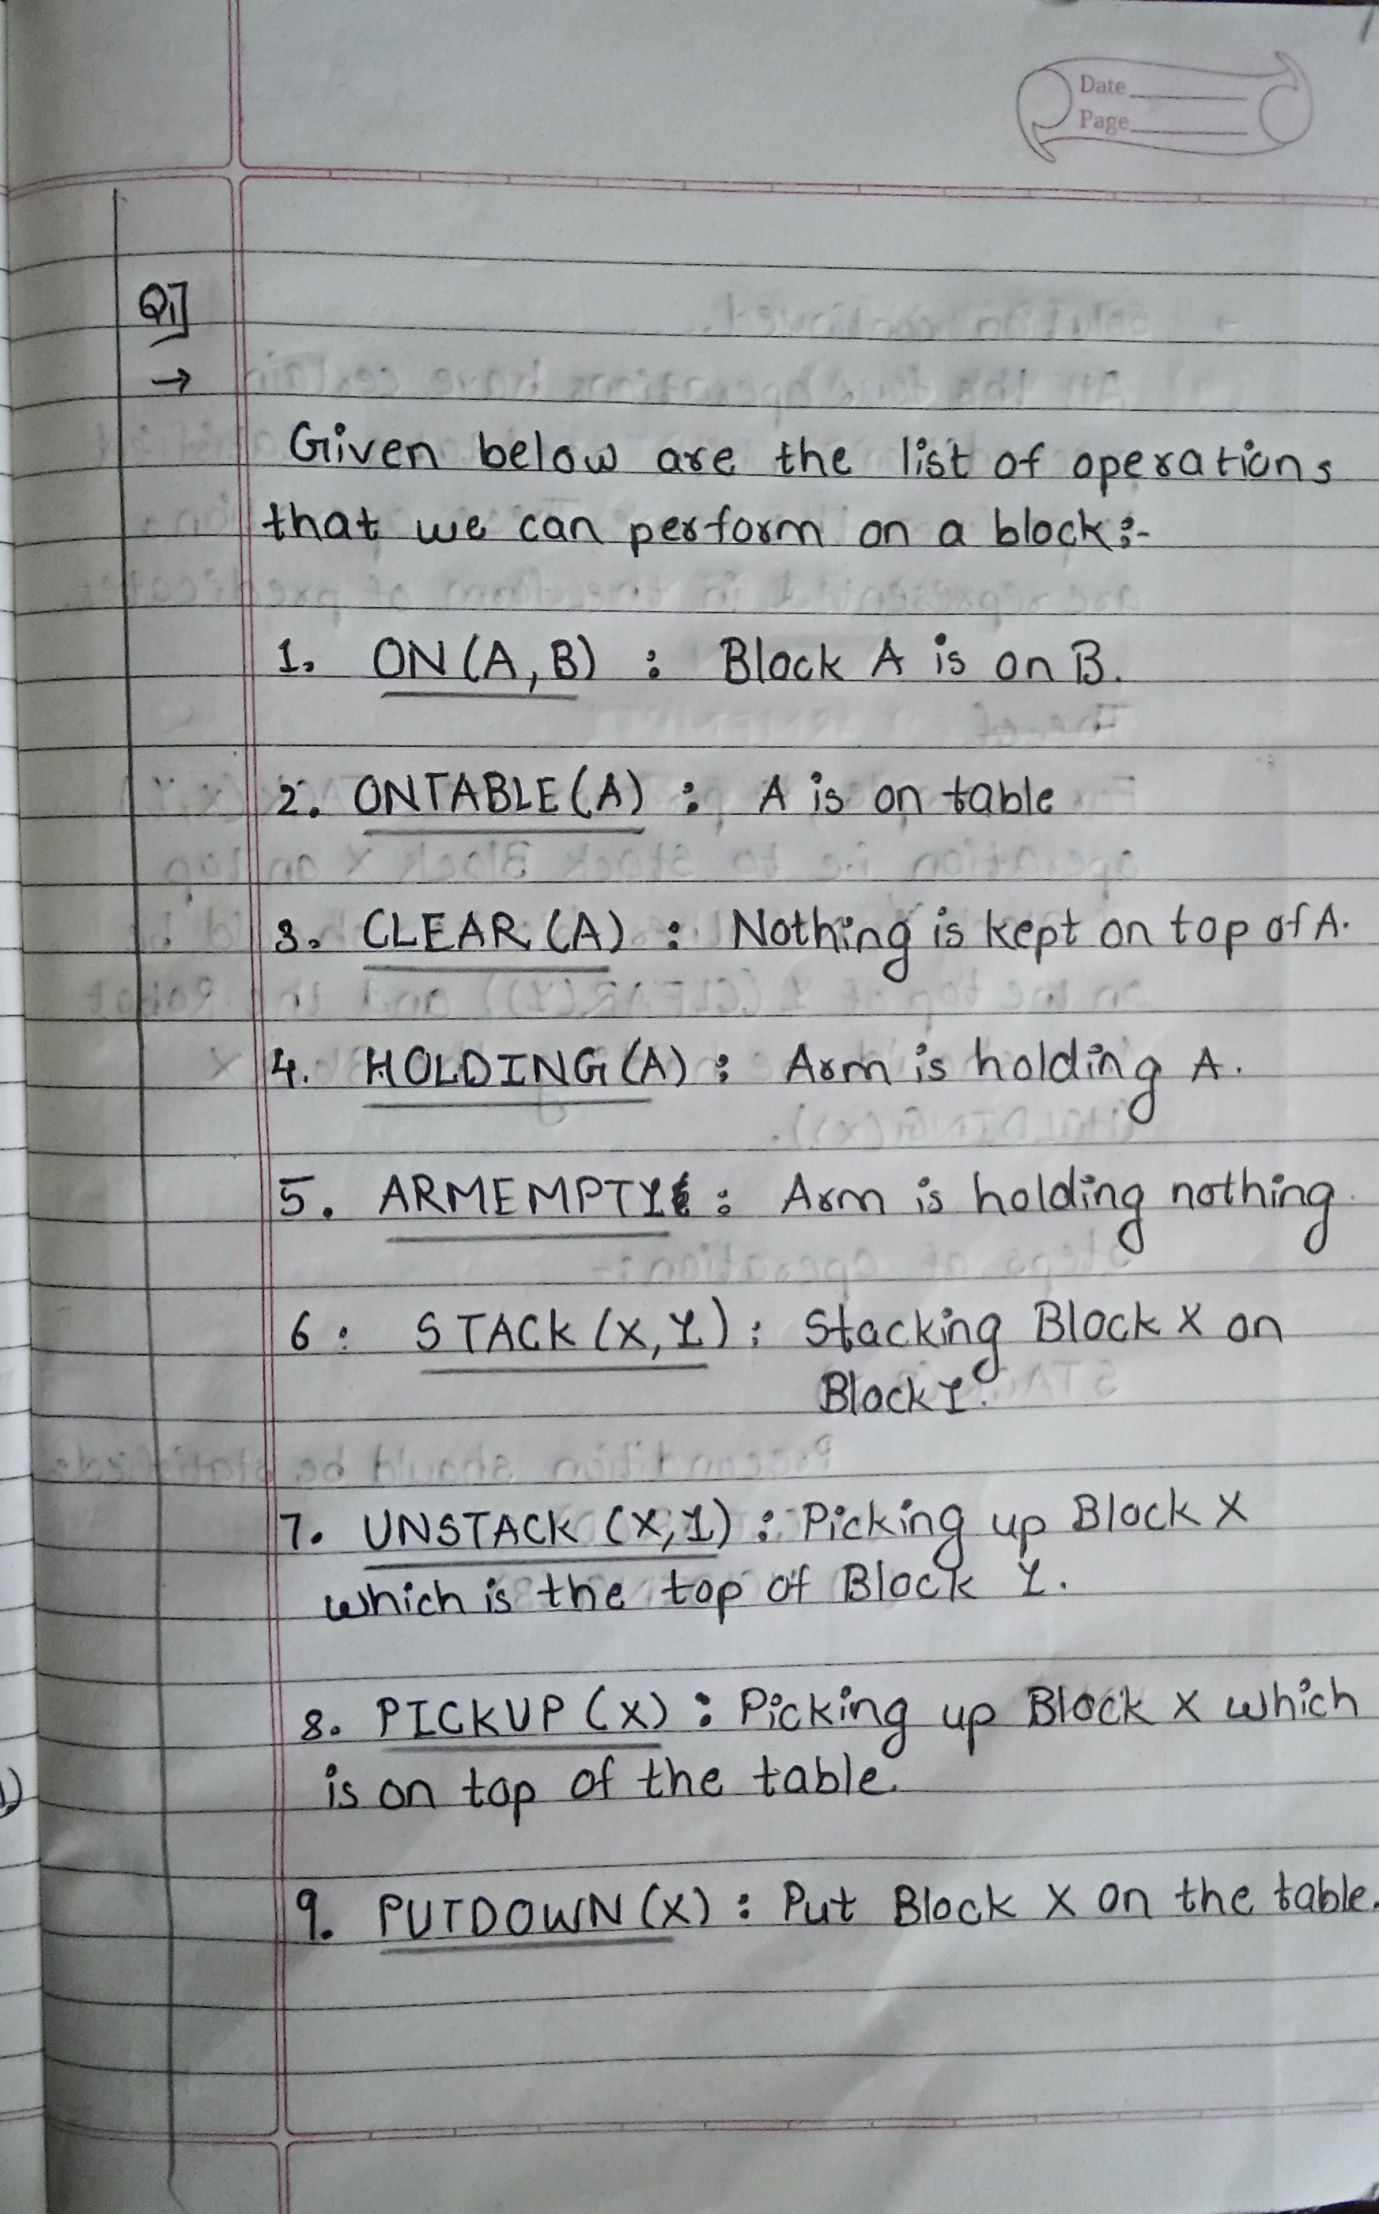 Date
Page
Q1]
→
Given below are the list of operations
that we can perform on a block:-
1. ON(A,B) : Block A is on B.
2. ONTABLE(A) : A is on table
3. CLEAR(A) : Nothing is kept on top of A.
4. HOLDING(A) : Arm is holding A.
5. ARMEMPTY : Arm is holding nothing.
6: STACK(X,Y) : Stacking Block X on
Block Y.
7. UNSTACK (X,Y) : Picking up Block X
which is the top of Block Y.
8. PICKUP (X) : Picking up Block X which
is on top of the table.
9. PUTDOWN(X) : Put Block X on the table.